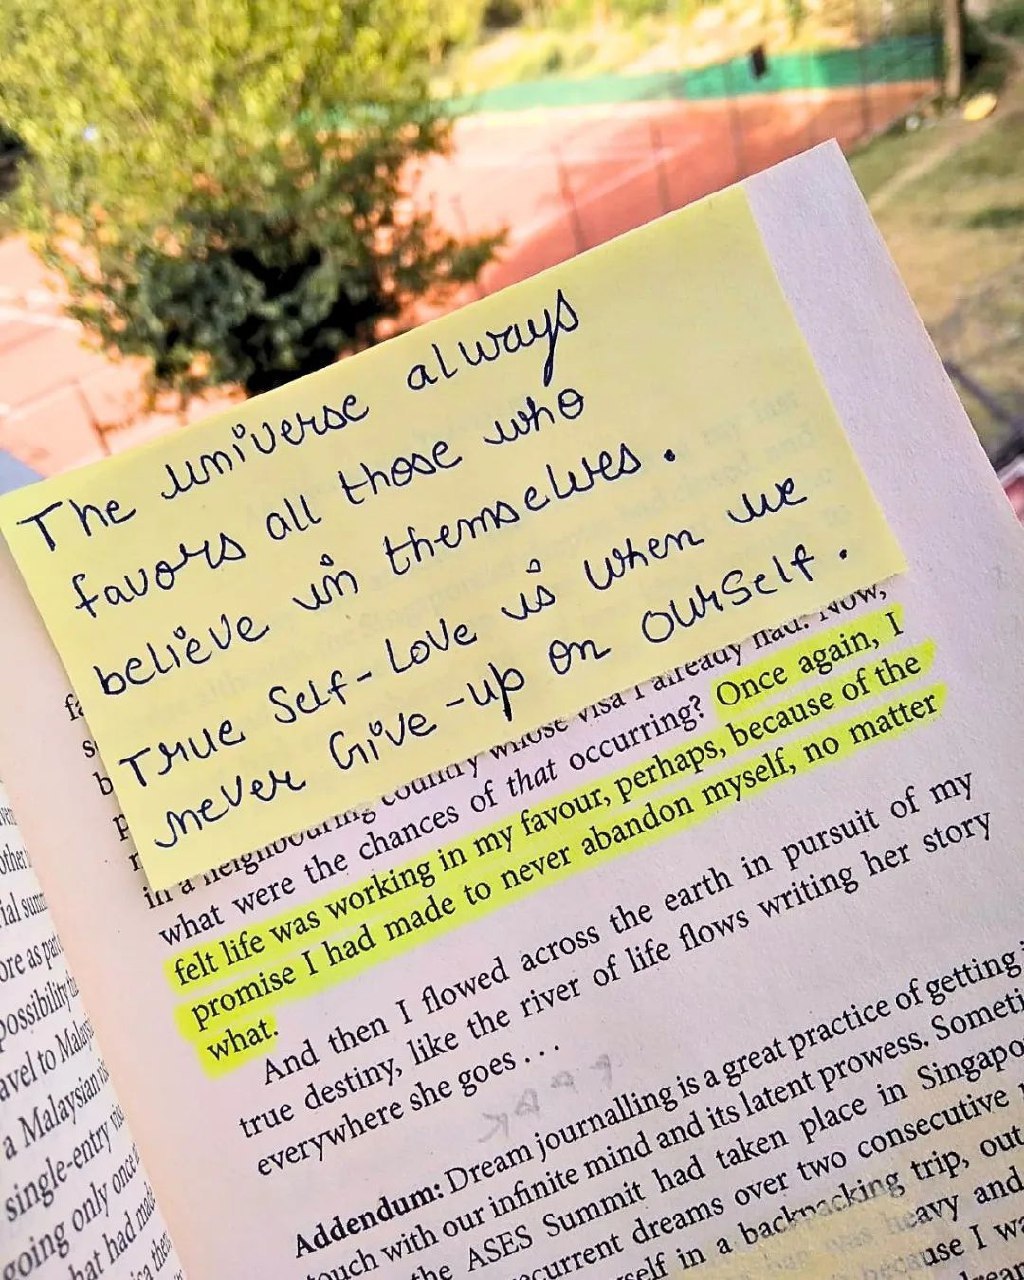 The universe always
favors all those who
believe in themselves.
True Self-Love is when we
never Give-up on ourself.
country whose visa I already had. Now,
in a neighbouring
what were the chances of that occurring? Once again, I
felt life was working in my favour, perhaps, because of the
promise I had made to never abandon myself, no matter
what.
And then I flowed across the earth in pursuit of my
true destiny, like the river of life flows writing her story
everywhere she goes . . .
Addendum: Dream journalling is a great practice of getting
touch with our infinite mind and its latent prowess. Someti
the ASES Summit had taken place in Singapo
current dreams over two consecutive
self in a backpacking trip, out
heavy and
because I wa
other
ial summ
ore as part
possibility
avel to Malay
a Malaysian
single-entry
going only once
hat had made